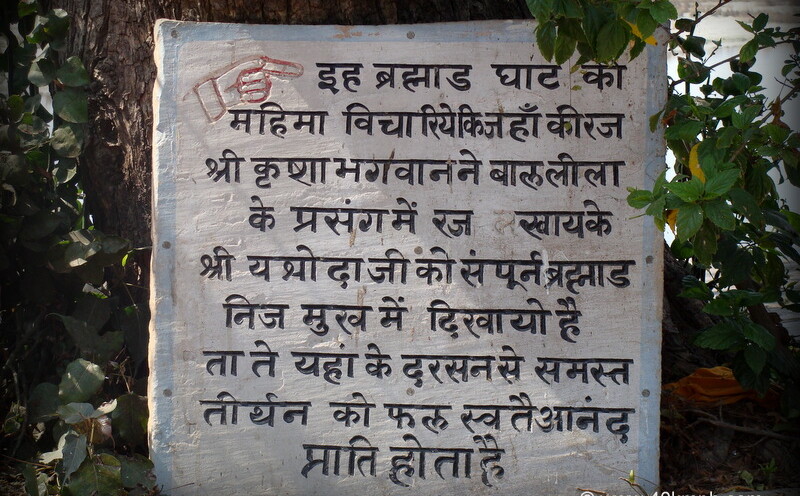 इह ब्रह्माड घाट की
महिमा विचारिये कि जहाँ की रज
श्री कृष्णा भगवान ने बाल लीला
के प्रसंग में रज खायके
श्री यश्रोदा जी को संपूर्न ब्रह्माड
निज मुख में दिखायो है
ता ते यहां के दरसन से समस्त
तीर्थन को फल स्वतै आनंद
प्राति होता है